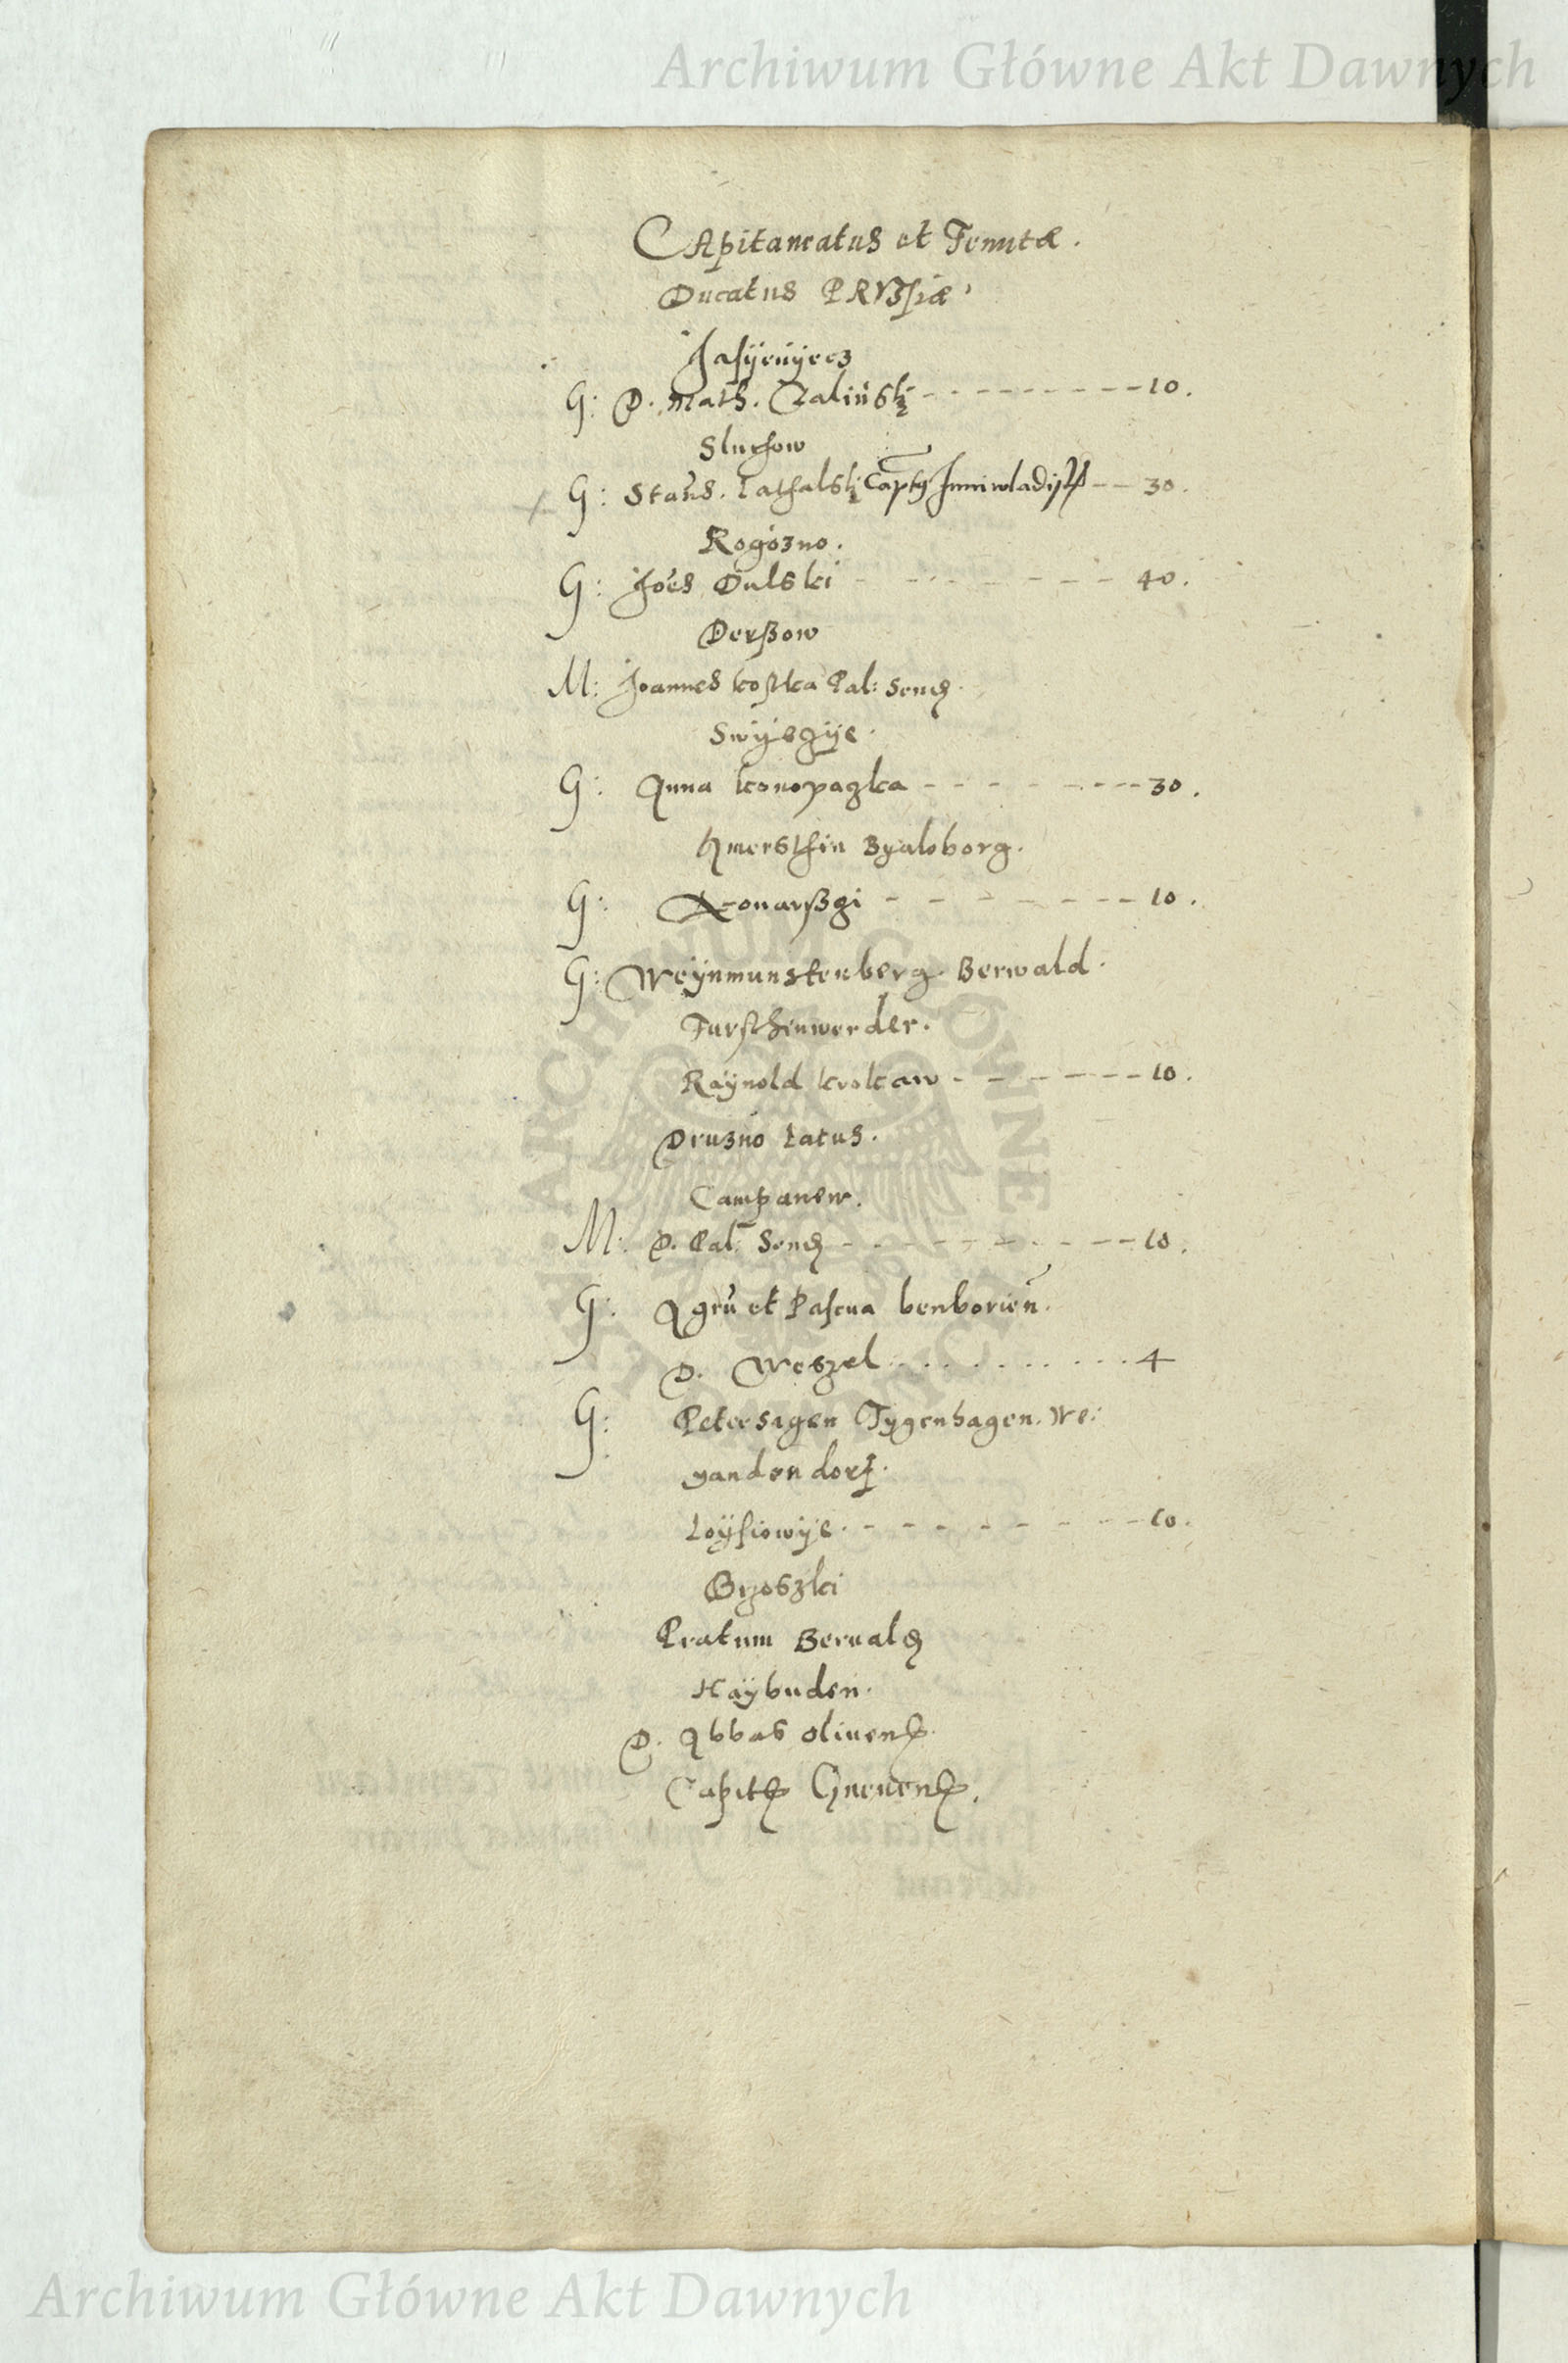 Archiwum Główne Akt Dawnych
CApitaneatus et Tenutæ.
Ducatus PRVSsiæ
Jasÿenÿecz
G: D. Math. Czalinski 10.
Sluchow
G: Stan̄s. Lathalski Capts Juniwladisl 30.
Rogozno.
G: Joēs Dulski 40.
Derßow
M: Joannes kostka Pal: Send
Swÿeczÿe.
G: Anna konopaczka 30.
Hmersthin Byaloborg.
G: Konarßgi 10.
G: Weÿnmunstenberg. Berwald.
Furschenwerder.
Raÿnold krokaw 10.
Druzno Latus.
Campanew.
M: D. Pal: Send 10.
G: Agrū et Pascua benborien̄.
D. Weszel 4
G: Petersagen Tygenhagen. We:
yandendorf.
Loÿsiowÿe. 10.
Brzoszki
Pratum Berwald
Haÿbuden.
D. Abbas Oliuens.
Capits Gneuens.
ARCHIWUM GŁÓWNE AKT DAWNYCH
Archiwum Główne Akt Dawnych